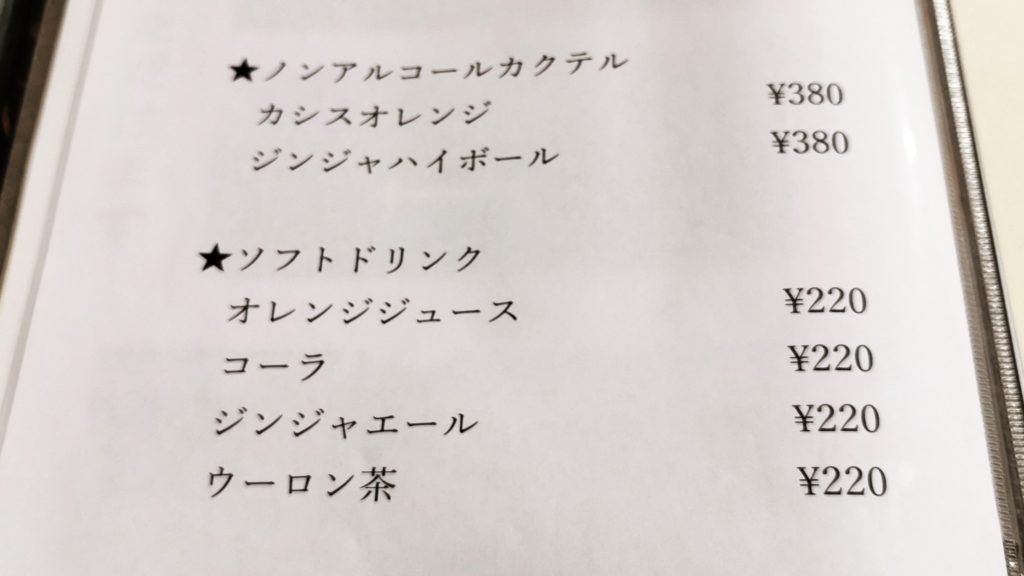 ★ノンアルコールカクテル
カシスオレンジ ¥380
ジンジャハイボール ¥380
★ソフトドリンク
オレンジジュース ¥220
コーラ ¥220
ジンジャエール ¥220
ウーロン茶 ¥220